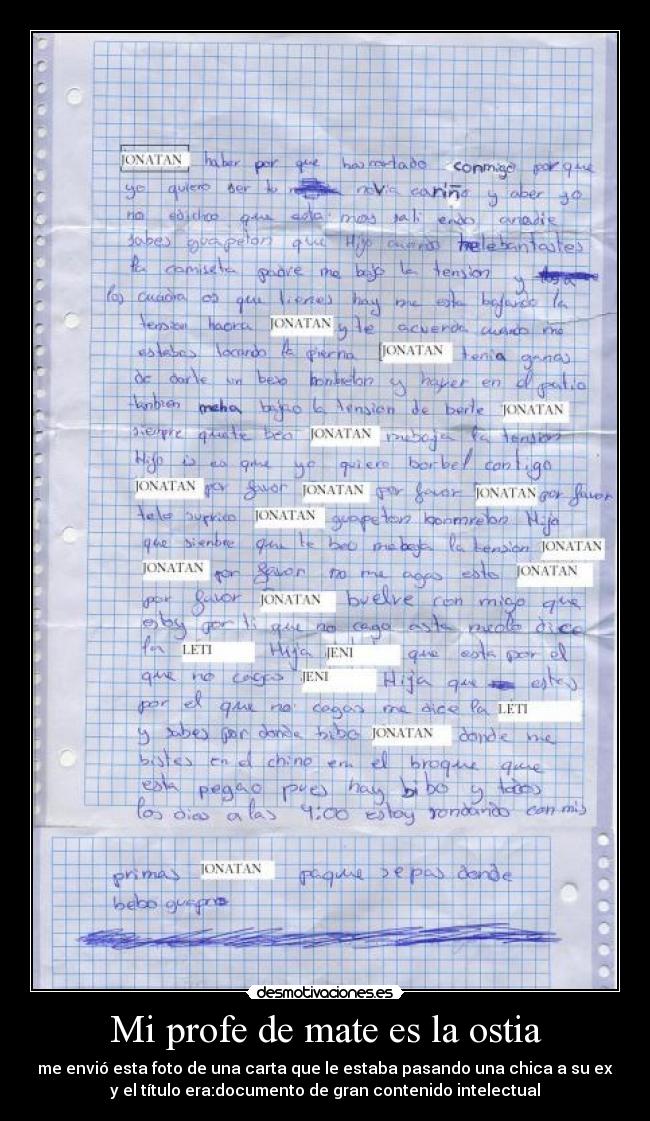 JONATAN haber por que has cortado conmigo porque
yo quiero ser tu novia cariño y aber yo
no e dicho que esta mos sali endo anadie
sabes guapeton que Hijo cuando telebantastes
la camiseta padre me bajo la tension y
los cuadra os que tienes hay me esta bajando la
tension haora JONATAN y te acuerda cuando me
estabas tocando la pierna JONATAN tenia ganas
de darte un beso bonbeton y hayer en el patio
tanbien meha bajao la tension de berte JONATAN
siempre quete beo JONATAN mebaja la tension
Hijo es que yo quiero borbel contigo
JONATAN por favor JONATAN por favor JONATAN por favor
telo suprico JONATAN guapeton bonmreton Hijo
que sienbre que te beo mebaja la tension JONATAN
JONATAN por favor no me agas esto JONATAN
por favor JONATAN buelve con migo que
estoy por ti que no cago asta me lo dice
la LETI Hija JENI que esta por el
que no cagas JENI Hija que estas
por el que no cagas me dice la LETI
y sabes por donde bibo JONATAN donde me
bistes en el chino em el broque que
esta pegao pues hay bibo y todos
los dias a las 4:00 estoy rondando con mis
primas JONATAN paque sepas donde
bebo guapo
desmotivaciones.es
Mi profe de mate es la ostia
me envió esta foto de una carta que le estaba pasando una chica a su ex
y el título era:documento de gran contenido intelectual